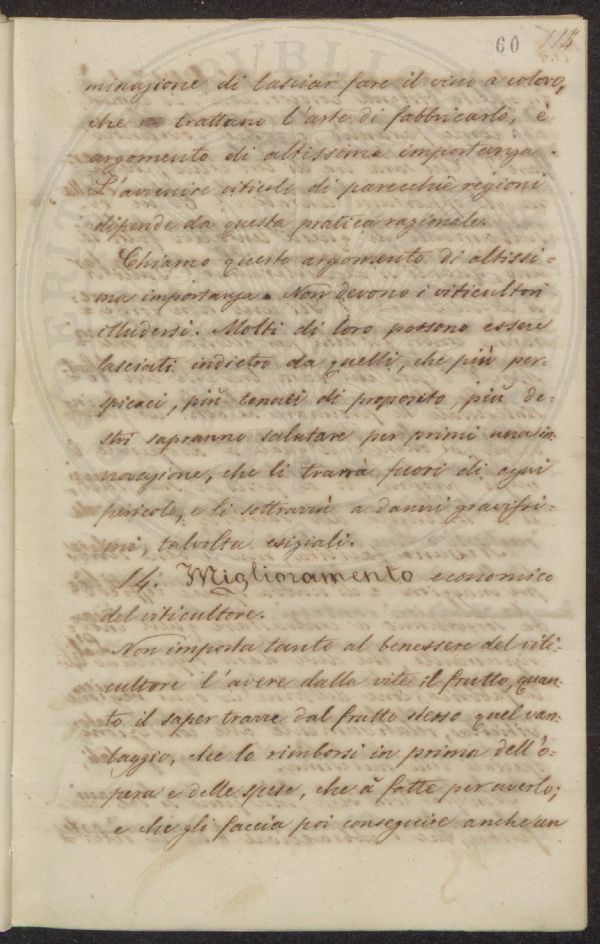 60 115
minazione di lasciar fare il vino a coloro,
che trattano l'arte di fabbricarlo, è
argomento di altissima importanza.
L'avvenire viticolo di parecchie regioni
dipende da questa pratica razionale.
Chiamo questo argomento di altissi=
ma importanza. Non devono i viticultori
illudersi. Molti di loro possono essere
lasciati indietro da quelli, che più per=
spicaci, più tenaci di proposito, più de=
stri sapranno salutare per primi una in
novazione, che li trarrà fuori di ogni
pericolo, e li sottrarrà a danni gravissi=
mi, talvolta esiziali.
14. Miglioramento economico
del viticultore.
Non importa tanto al benessere del viti=
cultore l'avere dalla vite il frutto, quan=
to il saper trarre dal frutto stesso quel van=
taggio, che lo rimborsi in prima dell'o=
pera e delle spese, che à fatte per averlo;
e che gli faccia poi conseguire anche un